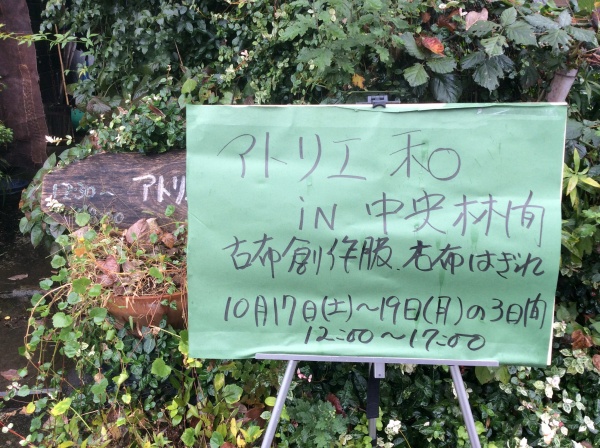 アトリエ 和
iN 中央林間
古布創作服、古布はぎれ
10月17日(土)〜19日(月)の3日間
12:00〜17:00
12:30〜
アトリ